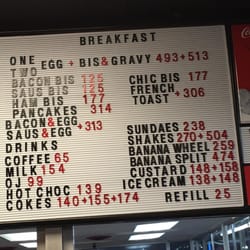 BREAKFAST
ONE EGG + BIS&GRAVY 493+513
TWO
BACON BIS 125
SAUS BIS 125
HAM BIS 177
PANCAKES 314
BACON&EGG
SAUS&EGG +313
CHIC BIS 177
FRENCH
TOAST +306
DRINKS
COFFEE 65
MILK 154
OJ 99
HOT CHOC 139
COKES 140+155+174
SUNDAES 238
SHAKES 270+504
BANANA WHEEL 259
BANANA SPLIT 474
CUSTARD 148+158
ICE CREAM 138+148
REFILL 25